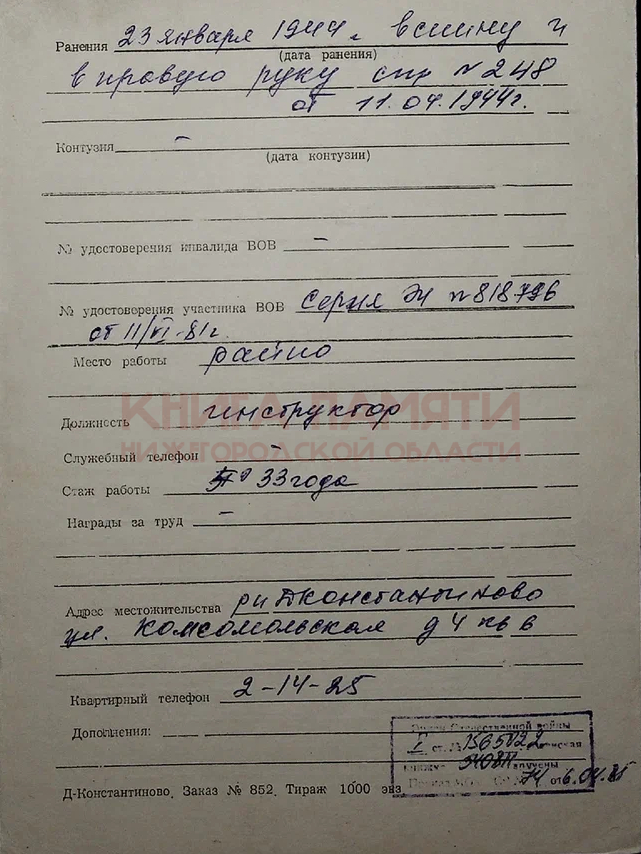 Ранения 23 января 1944 г. в спину и
(дата ранения)
в правую руку спр № 248
от 11.04.1944г.
Контузия –
(дата контузии)
№ удостоверения инвалида ВОВ –
№ удостоверения участника ВОВ Серия № 818796
от 11/VI-81г.
Место работы райпо
КНИГА ПАМЯТИ
Должность инструктор
НИЖЕГОРОДСКОЙ ОБЛАСТИ
Служебный телефон –
Стаж работы 33 года
Награды за труд –
Адрес местожительства рп Дконстантиново
ул. Комсомольская д 4 кв 6
Квартирный телефон 2-14-25
Дополнения:
Орден Отечественной войны
I ст. №
вручены
от 6.04.85
Д-Константиново, Заказ № 852, Тираж 1000 экз